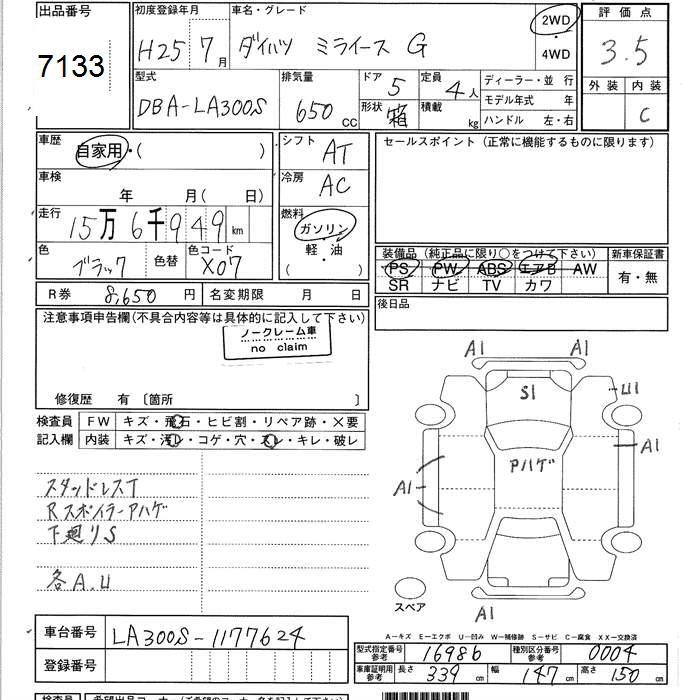 出品番号
7133
初度登録年月
H25 7月
車名・グレード
ダイハツ ミライース G
2WD
4WD
評価点
3.5
外装 内装
C
型式
DBA-LA300S
排気量
650 CC
ドア 5
形状 箱
定員 4人
積載 kg
ディーラー・並行
モデル年式 年
ハンドル 左・右
車歴
自家用・( )
車検
年 月( 日)
走行
15万6千949km
色
ブラック
色替
色コード
X07
シフト
AT
冷房
AC
燃料
ガソリン
軽・油
( )
セールスポイント(正常に機能するものに限ります)
装備品(純正品に限り○をつけて下さい)
PS PW ABS エアB AW
SR ナビ TV カワ
新車保証書
有・無
後日品
R券 8,650円
名変期限 月 日
注意事項申告欄(不具合内容等は具体的に記入して下さい)
ノークレーム車
no claim
修復歴 有〔箇所 〕
検査員
記入欄
FW キズ・飛石・ヒビ割・リペア跡・X要
内装 キズ・汚レ・コゲ・穴・スレ・キレ・破レ
スタッドレスT
Rスポイラーアハゲ
下廻りS
各A.U
A1 A1
S1
U1
Pハゲ
A1
A1
A1
スペア
A−キズ E−エクボ U−凹み W−補修跡 S−サビ C−腐食 XX−交換済
車台番号
LA300S-1177624
登録番号
型式指定番号
参考
16986
種別区分番号
参考
0004
車庫証明用
参考
長さ 339cm
幅 147cm
高さ 150cm